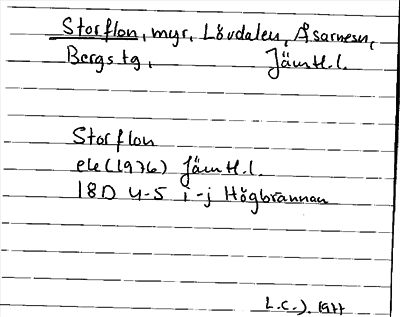 Storflon, myr, Lövdalen, Åsarnesn,
Bergs tg, Jämtl.l.
Storflon
ek (1976) Jämtl.l.
18D 4-5 i-j Högbrännan
L.C.J. 1977